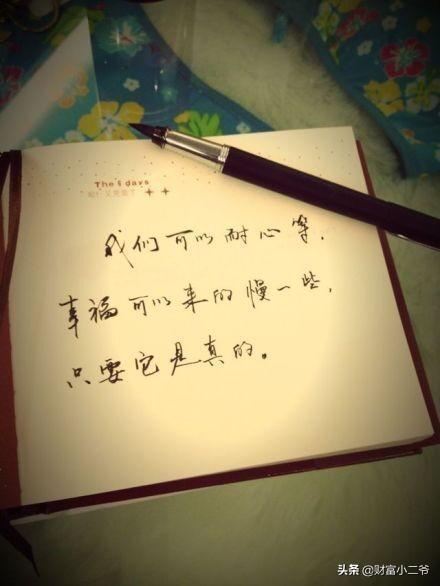 The 6 days
我们可以耐心等,
幸福可以来的慢一些,
只要它是真的。
头条 @财富小二爷